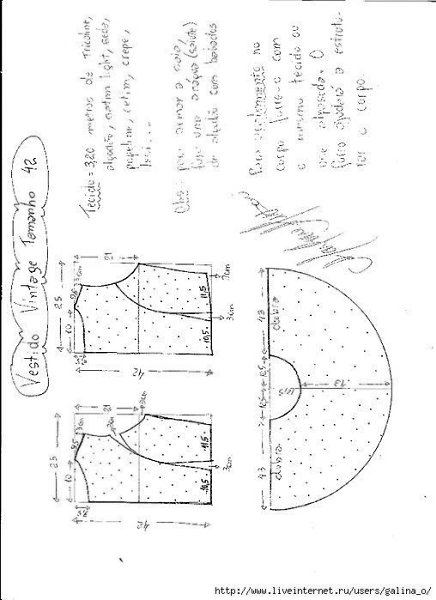 Vestido Vintage Tamanho 42
Tecido = 3,20 metros de tricoline,
algodão, cetim light, seda,
popeline, cetim, crepe,
Obs: para armar a saia,
faça uma anágua (saiote)
de algodão com babados
Para acabamento no
corpo forre-o com
o mesmo tecido ou
use O
forro ajudará a estrutu-
rar o corpo.
25
10
9,5
3cm
21
2cm
11,5
10,5
3cm
42
25
10
9,5
3cm
21
2cm
11,5
10,5
3cm
42
73
dobra
11,5
73
dobra
73
http://www.liveinternet.ru/users/galina_o/